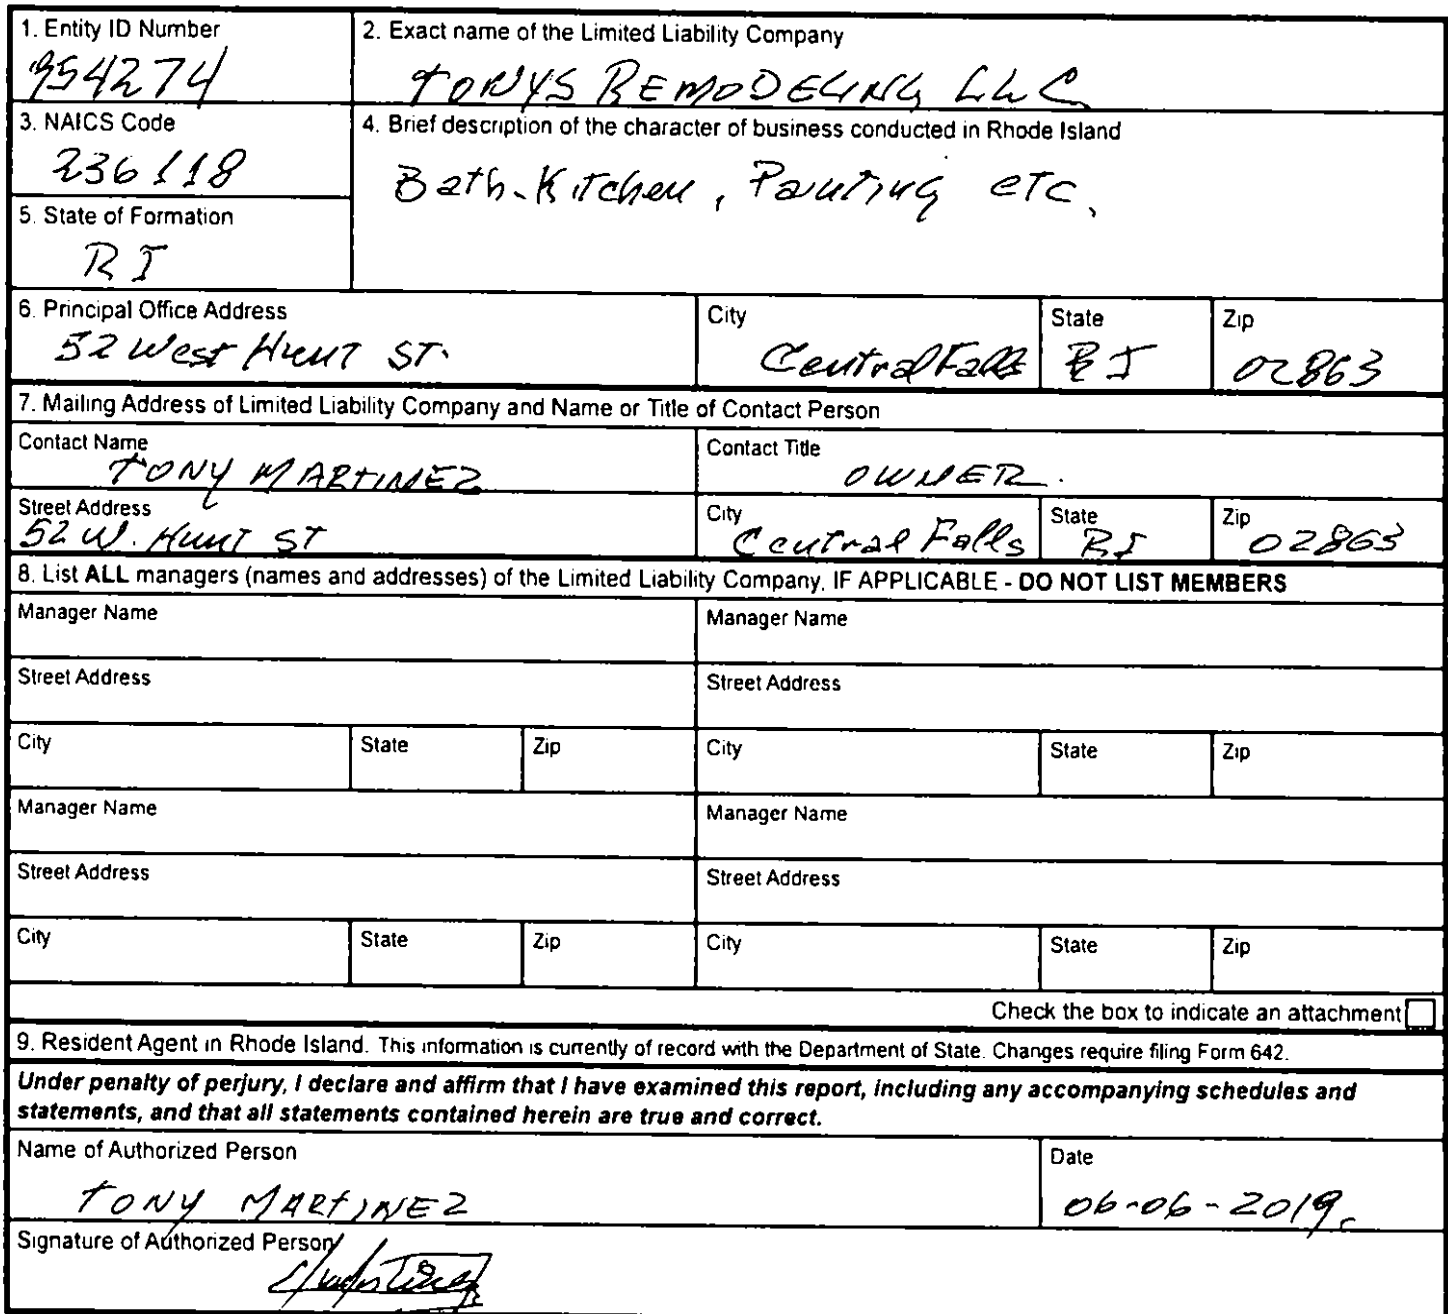 1. Entity ID Number
954274
2. Exact name of the Limited Liability Company
TONYS REMODELING LLC
3. NAICS Code
236118
4. Brief description of the character of business conducted in Rhode Island
Bath-Kitchen, Painting etc.
5. State of Formation
RI
6. Principal Office Address
52 West Hunt ST.
City
Central Falls
State
RI
Zip
02863
7. Mailing Address of Limited Liability Company and Name or Title of Contact Person
Contact Name
TONY MARTINEZ
Contact Title
OWNER.
Street Address
52 W. Hunt ST
City
Central Falls
State
RI
Zip
02863
8. List ALL managers (names and addresses) of the Limited Liability Company, IF APPLICABLE - DO NOT LIST MEMBERS
Manager Name
Manager Name
Street Address
Street Address
City
State
Zip
City
State
Zip
Manager Name
Manager Name
Street Address
Street Address
City
State
Zip
City
State
Zip
Check the box to indicate an attachment
9. Resident Agent in Rhode Island. This information is currently of record with the Department of State. Changes require filing Form 642.
Under penalty of perjury, I declare and affirm that I have examined this report, including any accompanying schedules and
statements, and that all statements contained herein are true and correct.
Name of Authorized Person
TONY MARTINEZ
Date
06-06-2019.
Signature of Authorized Person